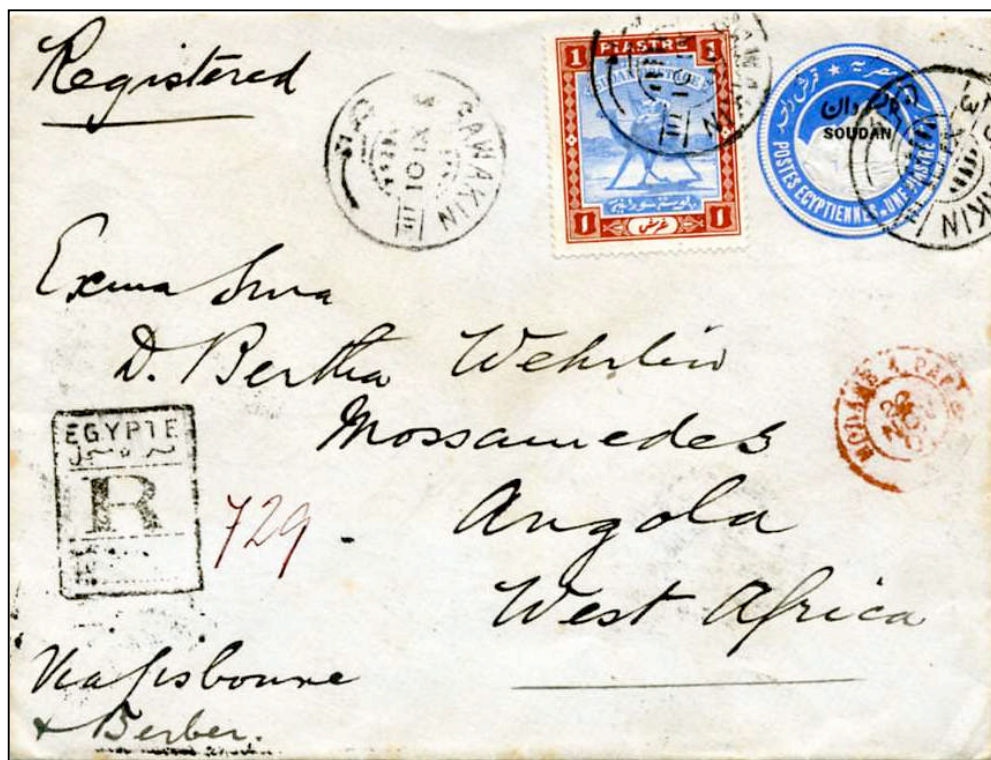 Registered
SAWAKIN
10 IX
1 PIASTRE 1
بوستة سودانية
1 غرش 1
السودان
SOUDAN
POSTES EGYPTIENNES _ UNE PIASTRE
Exma Snra
D. Bertha Wehrlin
Mossamedes
Angola
West Africa
EGYPTE
R
729.
Via Lisbonne
+ Berber.